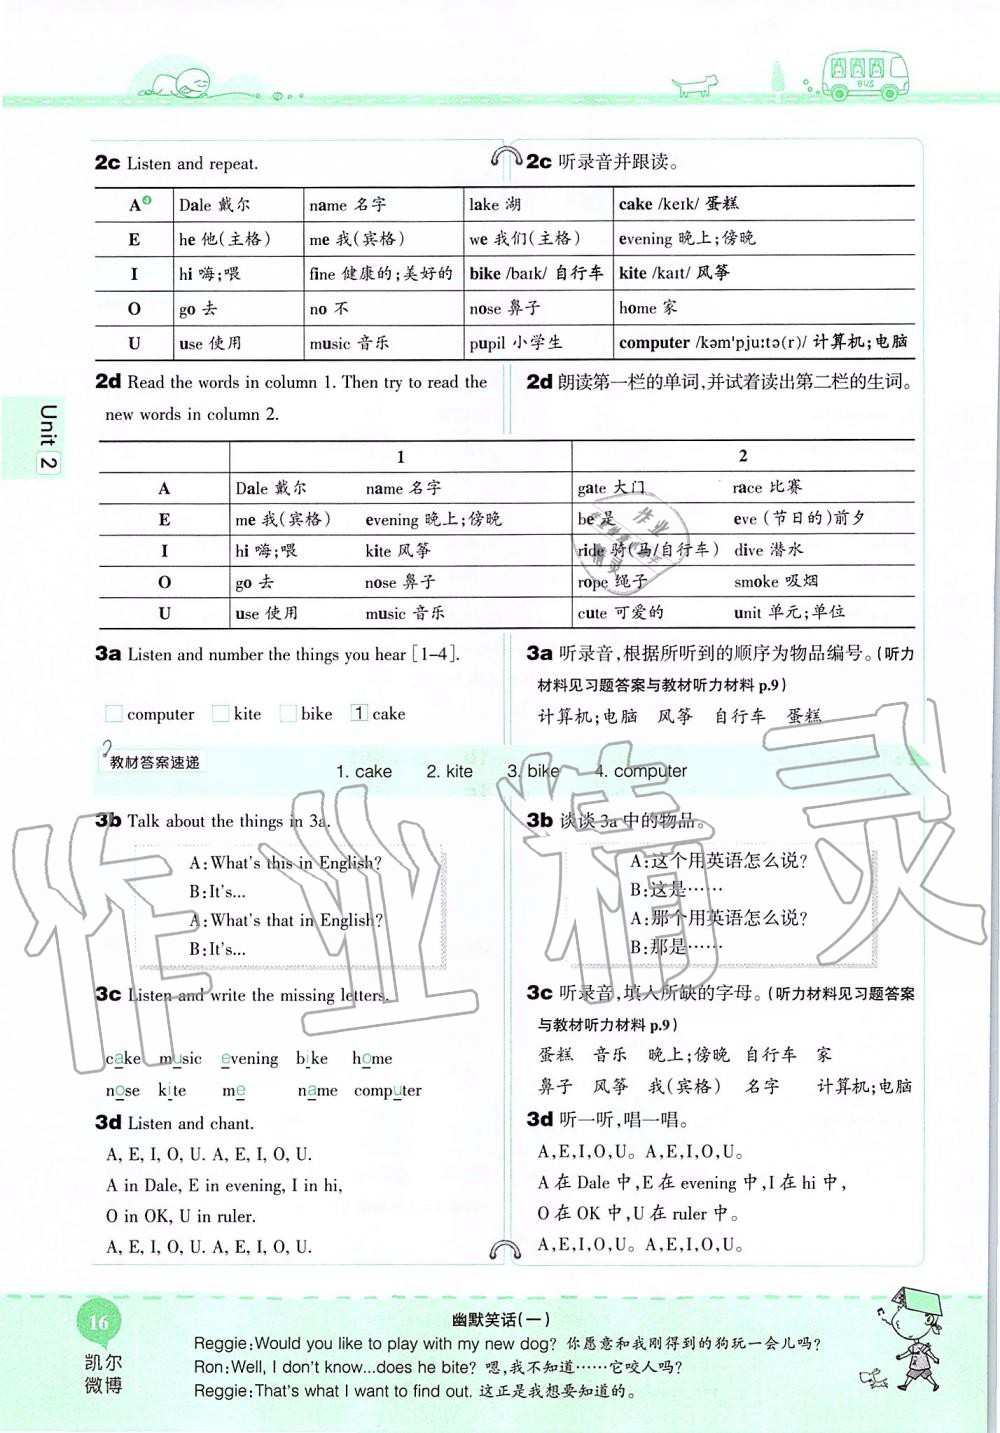 BUS
2c Listen and repeat.
2c 听录音并跟读。
A④ Dale 戴尔 name 名字 lake 湖 cake /keɪk/ 蛋糕
E he 他(主格) me 我(宾格) we 我们(主格) evening 晚上;傍晚
I hi 嗨;喂 fine 健康的;美好的 bike /baɪk/ 自行车 kite /kaɪt/ 风筝
O go 去 no 不 nose 鼻子 home 家
U use 使用 music 音乐 pupil 小学生 computer /kəm'pjuːtə(r)/ 计算机;电脑
2d Read the words in column 1. Then try to read the
new words in column 2.
2d 朗读第一栏的单词,并试着读出第二栏的生词。
Unit 2
1 2
A Dale 戴尔 name 名字 gate 大门 race 比赛
E me 我(宾格) evening 晚上;傍晚 be 是 eve (节日的)前夕
I hi 嗨;喂 kite 风筝 ride 骑(马/自行车) dive 潜水
O go 去 nose 鼻子 rope 绳子 smoke 吸烟
U use 使用 music 音乐 cute 可爱的 unit 单元;单位
3a Listen and number the things you hear [1-4].
computer kite bike 1 cake
3a 听录音,根据所听到的顺序为物品编号。(听力
材料见习题答案与教材听力材料 p.9)
计算机;电脑 风筝 自行车 蛋糕
教材答案速递
1. cake 2. kite 3. bike 4. computer
3b Talk about the things in 3a.
A:What's this in English?
B:It's...
A:What's that in English?
B:It's...
3b 谈谈 3a 中的物品。
A:这个用英语怎么说?
B:这是……
A:那个用英语怎么说?
B:那是……
3c Listen and write the missing letters.
cake music evening bike home
nose kite me name computer
3c 听录音,填入所缺的字母。(听力材料见习题答案
与教材听力材料 p.9)
蛋糕 音乐 晚上;傍晚 自行车 家
鼻子 风筝 我(宾格) 名字 计算机;电脑
3d Listen and chant.
A, E, I, O, U. A, E, I, O, U.
A in Dale, E in evening, I in hi,
O in OK, U in ruler.
A, E, I, O, U. A, E, I, O, U.
3d 听一听,唱一唱。
A,E,I,O,U。A,E,I,O,U。
A 在 Dale 中,E 在 evening 中,I 在 hi 中,
O 在 OK 中,U 在 ruler 中。
A,E,I,O,U。A,E,I,O,U。
作业精灵
16
凯尔
微博
幽默笑话(一)
Reggie:Would you like to play with my new dog? 你愿意和我刚得到的狗玩一会儿吗?
Ron:Well, I don't know...does he bite? 嗯,我不知道……它咬人吗?
Reggie:That's what I want to find out. 这正是我想要知道的。